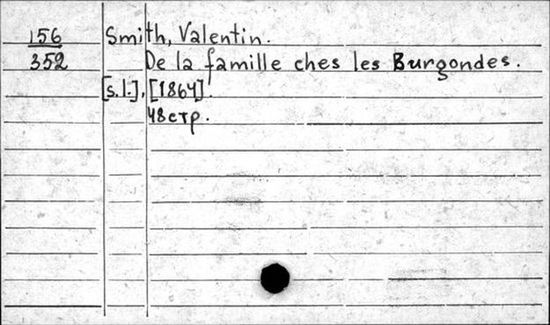 156 Smith, Valentin.
352 De la famille ches les Burgondes.
[s.l.], [1864].
48стр.